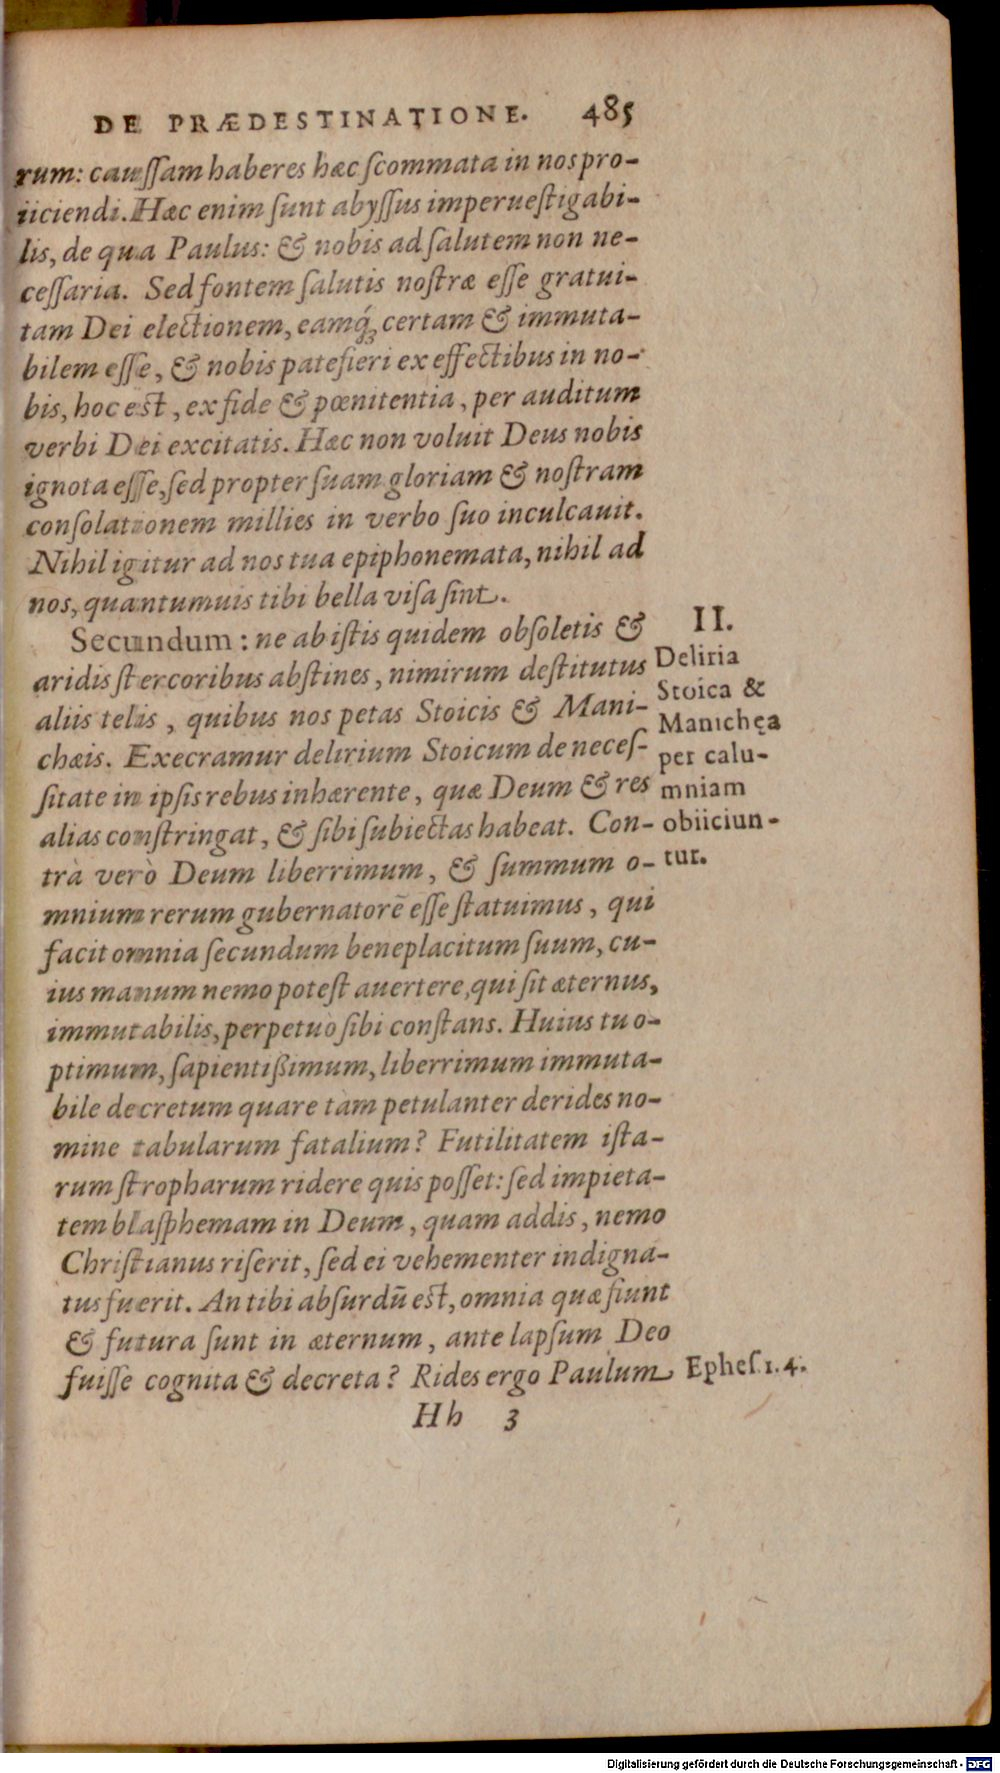 DE PRÆDESTINATIONE. 485
rum: cauſſam haberes hæc ſcommata in nos pro-
iiciendi. Hæc enim ſunt abyſſus imperueſtigabi-
lis, de qua Paulus: & nobis ad ſalutem non ne-
ceſſaria. Sed fontem ſalutis noſtræ eſſe gratui-
tam Dei electionem, eamq́; certam & immuta-
bilem eſſe, & nobis patefieri ex effectibus in no-
bis, hoc est, ex fide & pœnitentia, per auditum
verbi Dei excitatis. Hæc non voluit Deus nobis
ignota eſſe, ſed propter ſuam gloriam & noſtram
conſolationem millies in verbo ſuo inculcauit.
Nihil igitur ad nos tua epiphonemata, nihil ad
nos, quantumuis tibi bella viſa ſint.
Secundum: ne ab iſtis quidem obſoletis &
aridis ſtercoribus abſtines, nimirum deſtitutus
aliis telis, quibus nos petas Stoicis & Mani-
chæis. Execramur delirium Stoicum de neceſ-
ſitate in ipſis rebus inhærente, quæ Deum & res
alias conſtringat, & ſibi ſubiectas habeat. Con-
trà verò Deum liberrimum, & ſummum o-
mnium rerum gubernatorē eſſe ſtatuimus, qui
facit omnia ſecundum beneplacitum ſuum, cu-
ius manum nemo poteſt auertere, qui ſit æternus,
immutabilis, perpetuò ſibi conſtans. Huius tu o-
ptimum, ſapientißimum, liberrimum immuta-
bile decretum quare tàm petulanter derides no-
mine tabularum fatalium? Futilitatem iſta-
rum ſtropharum ridere quis poſſet: ſed impieta-
tem blaſphemam in Deum, quam addis, nemo
Chriſtianus riſerit, ſed ei vehementer indigna-
tus fuerit. An tibi abſurdū est, omnia quæ fiunt
& futura ſunt in æternum, ante lapſum Deo
fuiſſe cognita & decreta? Rides ergo Paulum
Hh 3
II.
Deliria
Stoica &
Manichęa
per calu-
mniam
obiiciun-
tur.
Epheſ. 1. 4.
Digitalisierung gefördert durch die Deutsche Forschungsgemeinschaft - DFG